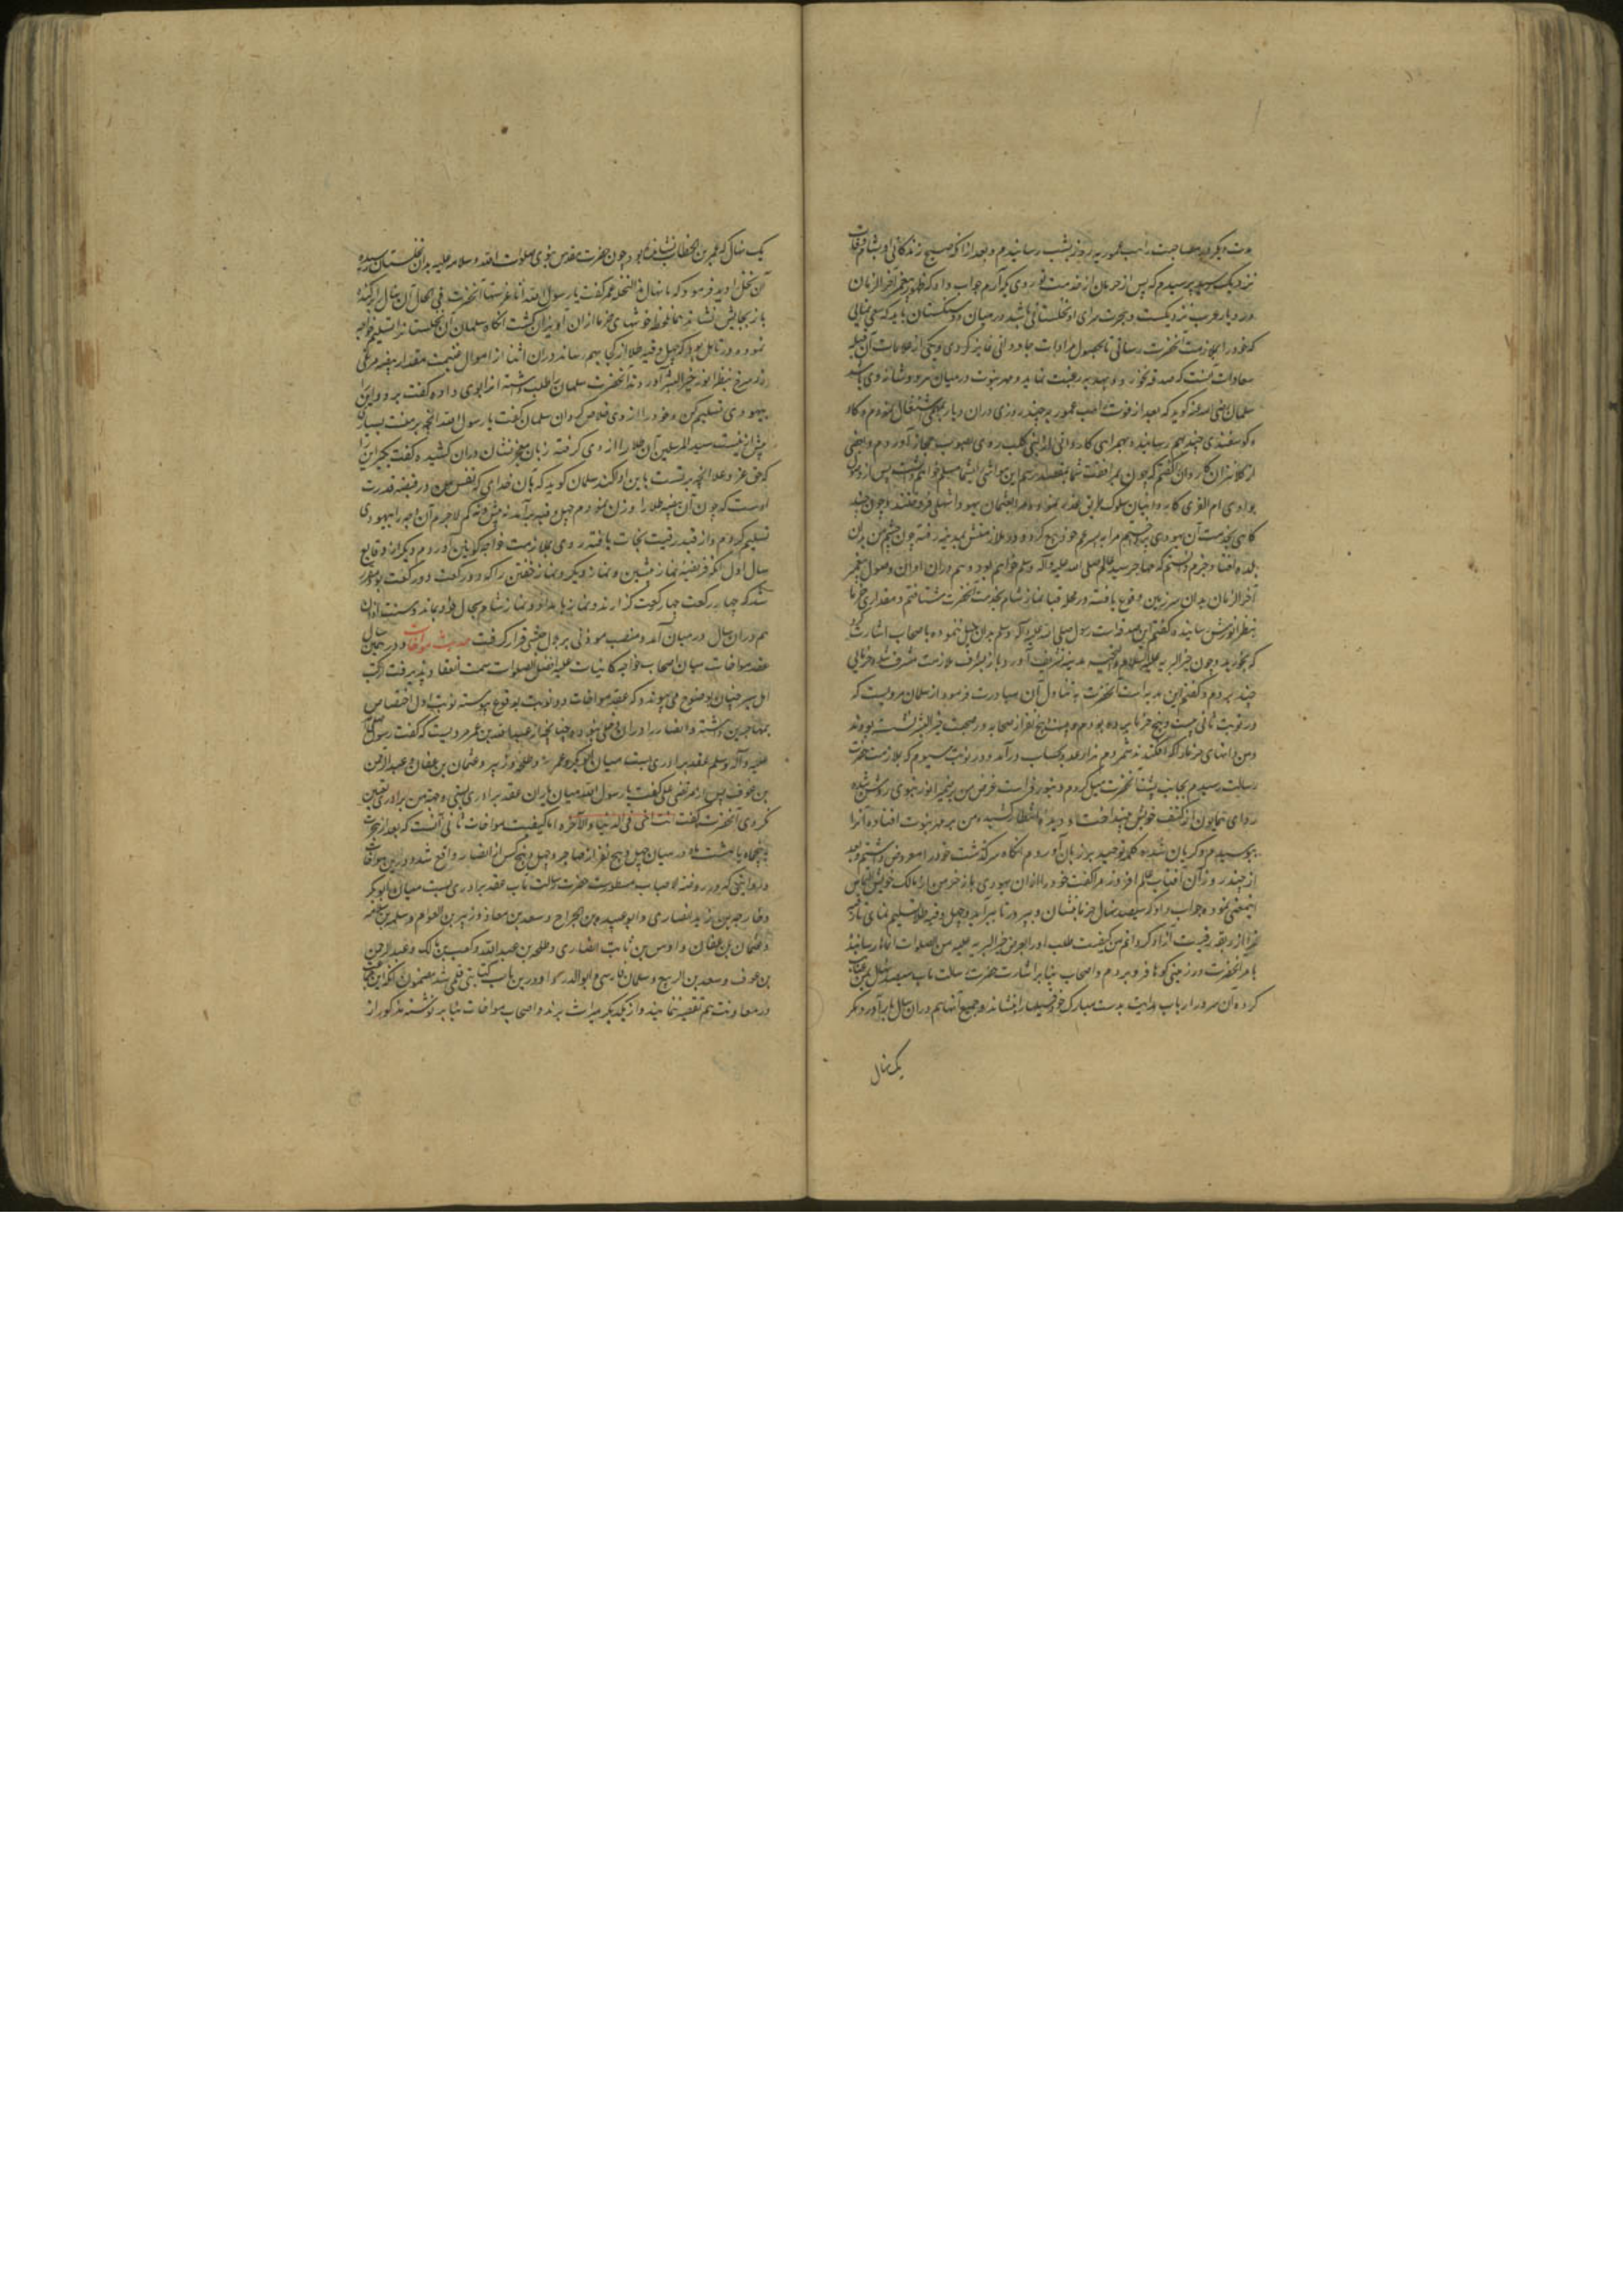 مدت دیگر در مصاحبت راهب عموریه روز بشب رسانیدم و بعد از آنکه صبح زندگانی او بشام وفات
نزدیک رسید پرسیدم که پس از حرمان از خدمت تو روی بکه آرم جواب داد که ظهور پیغمبر آخر الزمان
در دیار عرب نزدیکست و هجرت سرای او نخلستانی باشد در میان دو سنگستان باید که سعی نمایی
که خود را بملازمت آنحضرت رسانی تا بحصول مرادات جاودانی فایز گردی و یکی از علامات آن قبله
سعادات آنست که صدقه نخورد و بهدیه رغبت نماید و مهر نبوت در میان هر دو شانه وی باشد
سلمان رضی الله عنه گوید که بعد از فوت راهب عموریه چند روزی در آن دیار بمهمی اشتغال نمودم و گاو
و گوسفندی چند بهم رسانیده بهمراهی کاروانی از بنی کلب روی بصوب حجاز آوردم و بعضی
از کلانتران کاروان را گفتم که چون بمرافقت شما بمقصد رسم این مواشی را بشما مسلم خواهم داشت پس از وصول
بوادی ام القری کاروانیان سلوک طریق غدر نموده مرا بعثمان یهود اشهلی فروختند و چون چند
گاهی بخدمت آن یهودی پرداختم مرا به پسر عم خود بیع کرد و در ملازمتش بمدینه رفته چون چشم من بدان
بلده افتاد جزم دانستم که مهاجر سید عالم صلی الله علیه و آله و سلم خواهد بود و هم در آن اوان وصول پیغمبر
آخر الزمان بدان سرزمین وقوع یافته در محله قبا نماز شام بخدمت آنحضرت شتافتم و مقداری خرما
بنظر انورش رسانیده گفتم این صدقه است رسول صلی الله علیه و آله و سلم بدان میل ننموده باصحاب اشارت کرد
که بخورید و چون خیر البریه علیه السلام و التحیه بمدینه تشریف آورد باز بشرف ملازمت مشرف شده خرمائی
چند بردم و گفتم این هدیه است آنحضرت به تناول آن مبادرت فرمود از سلمان مرویست که
در نوبت ثانی بیست و پنج خرما برده بودم و بیست و پنج نفر از صحابه در صحبت خیر البشر نشسته بودند
و من دانهای خرما را که افکندند شمردم هزار عدد بحساب درآمد و در نوبت سیوم که بملازمت حضرت
رسالت رسیدم بجانب پشت آنحضرت میل کردم و بنور فراست غرض من بر ضمیر انور نبوی روشن شده
ردای همایون از کتف خویش بینداخت و دیده انتظار کشیده من بر مهر نبوت افتاده آنرا
ببوسیدم و گریان شده کلمه توحید بر زبان آوردم آنگاه سرگذشت خود را معروض داشتم و بعد
از چند روز آن آفتاب عالم افروز مرا گفت خود را از آن یهودی باز خر من از مالک خویش التماس
اینمعنی نموده جواب داد که سیصد نهال خرما بنشان و بپرور تا ببر آید و چهل وقیه طلا تسلیم نمای تا رقبه
ترا از ربقه رقیت آزاد گردانم من کیفیت طلب او را بعرض خیر البریه علیه من الصلوات انماها رسانیده
بامر آنحضرت در زمینی گوها فرو بردم و اصحاب بنا بر اشارت حضرت رسالت مآب سیصد نهال بمن عنایت
کرده آن سرور ارباب هدایت بدست مبارک خود نهالها را بنشاند و جمیع آنها هم در آن سال بر آورد مگر
یک نهال
یک نهال که عمر بن الخطاب نشانده بود چون حضرت مقدس نبوی صلوات الله و سلامه علیه بدان نخلستان رسیده
آن نخل را دید فرمود که ما شان هذا النخله عمر گفت یا رسول الله انا غرستها آنحضرت فی الحال آن نهال را برکنده
باز بجایش نشاند همان لحظه خوشهای خرما از آن آویزان گشت آنگاه سلمان آن نخلستان را تسلیم خواجه
نمود و در تامل بود که چهل وقیه طلا از کجا بهم رساند در آن اثنا از اموال غنیمت مقدار بیضه مرغی
زر سرخ بنظر انور خیر البشر آوردند آنحضرت سلمان را طلب داشته آنرا بوی داده گفت برو و این را
بیهودی تسلیم کن و خود را از وی خلاص گردان سلمان گفت یا رسول الله آنچه بر منست بسیار
بیش ازینست سید المرسلین آن طلا را از وی گرفته زبان معجز نشان در آن کشیده گفت بگیر این را
که حق عز و علا آنچه بر تست باین ادا کند سلمان گوید که بآن خدای که نفس من در قبضه قدرت
اوست که چون آن بیضه طلا را وزن نمودم چهل وقیه برآمد نه بیش و نه کم لاجرم آن وجه را بیهودی
تسلیم کردم و از قید رقیت نجات یافته روی بملازمت خواجه کونین آوردم و دیگر از وقایع
سال اول آنکه فریضه نماز پیشین و نماز دیگر و نماز خفتن را که دو رکعت دو رکعت بود مقرر
شد که چهار رکعت چهار رکعت گزارند و نماز بامداد و نماز شام بحال خود بماند و سنت اذان
هم در آن سال در میان آمد و منصب موذنی بر بلال حبشی قرار گرفت حدیث مواخات و در همین سال
عقد مواخات میان اصحاب خواجه کاینات علیه افضل الصلوات سمت انعقاد پذیرفت از کتب
اهل سیر چنان بوضوح می پیوندد که عقد مواخات دو نوبت بوقوع پیوسته نوبت اول اختصاص
بمهاجرین داشته و انصار را در آن دخلی نبوده چنانچه از عبد الله بن عمر مرویست که گفت رسول صلی الله
علیه و آله و سلم عقد برادری بست میان ابو بکر و عمر و طلحه و زبیر و عثمان بن عفان و عبد الرحمن
بن عوف پس از آن مرتضی علی گفت یا رسول الله میان یاران عقد برادری بستی و جهت من برادری تعیین
نکردی آنحضرت گفت انت اخی فی الدنیا و الآخره اما کیفیت مواخات ثانی آنست که بعد از هجرت
به پنج ماه یا هشت ماه در میان چهل و پنج نفر از مهاجر و چهل و پنج کس از انصار واقع شد و درین مواخات
بروایتی که در روضه الاحباب مسطورست حضرت رسالت مآب عقد برادری بست میان ابو بکر
و خارجه بن زید انصاری و ابو عبیده بن الجراح و سعد بن معاذ و زبیر بن العوام و سلمه بن سلامه
و عثمان بن عفان و اوس بن ثابت انصاری و طلحه بن عبید الله و کعب بن مالک و عبد الرحمن
بن عوف و سعد بن الربیع و سلمان فارسی و ابو الدرداء و درین باب کتابتی قلمی شد مضمون آنکه این جماعت
در معاونت هم تقصیر ننمایند و از یکدیگر میراث برند و اصحاب مواخات بنا بر نوشته مذکور از